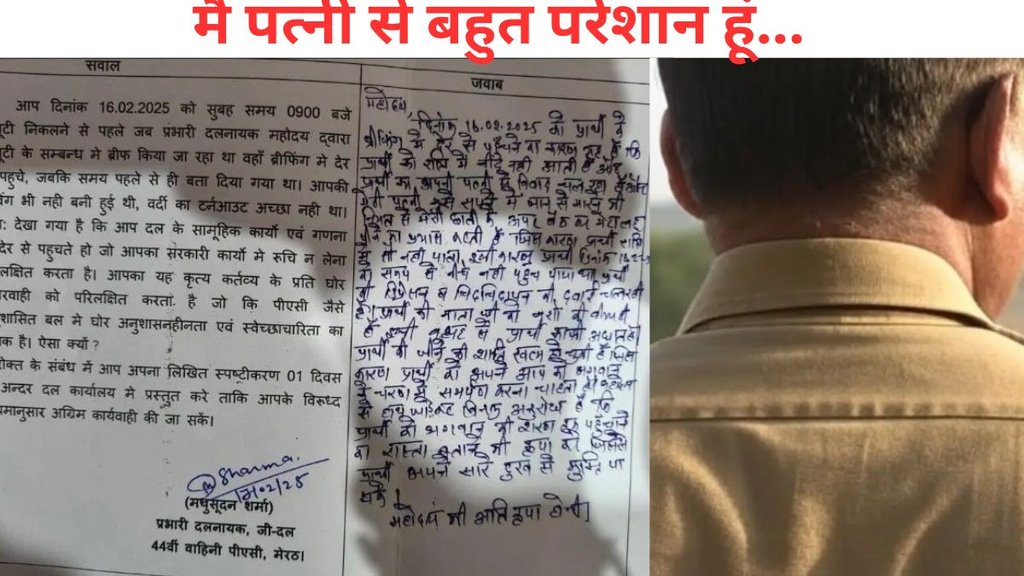 मै पत्नी से बहुत परेशान हूं...
सवाल
आप दिनांक 16.02.2025 को सुबह समय 0900 बजे
यूटी निकलने से पहले जब प्रभारी दलनायक महोदय द्वारा
यूटी के सम्बन्ध मे ब्रीफ किया जा रहा था वहाँ ब्रीफिंग मे देर
पहुचे, जबकि समय पहले से ही बता दिया गया था। आपकी
भी नही बनी हुई थी, वर्दी का टर्नआउट अच्छा नही था।
देखा गया है कि आप दल के सामूहिक कार्यो एवं गणना
देर से पहुचते हो जो आपका सरकारी कार्य मे रूचि न लेना
लक्षित करता है। आपका यह कृत्य कर्तव्य के प्रति घोर
परवाही को परिलक्षित करता है जो कि पीएसी जैसे
शासित बल मे घोर अनुशासनहीनता एवं स्वेच्छाचारिता का
क है। ऐसा क्यों ?
रोक्त के संबंध में आप अपना लिखित स्पष्टीकरण 01 दिवस
अन्दर दल कार्यालय मे प्रस्तुत करे ताकि आपके विरूध्द
यमानुसार अग्रिम कार्यवाही की जा सकें।
Sharma
/02/25
(मधुसूदन शर्मा)
प्रभारी दलनायक, जी-दल
44वी वाहिनी पीएसी, मेरठ।
जवाब
महोदय,
दिनांक 16.02.2025 को प्रार्थी के
ब्रीफिंग मे देर से पहुंचने का कारण यह है कि
प्रार्थी को रात मे नींद नही आती है
प्रार्थी का अपनी पत्नी से विवाद चल रहा है
मेरी पत्नी सपने मे
मेरी छाती के ऊपर बैठ कर मेरा खून
पीने का प्रयास करती है जिस कारण प्रार्थी रात्रि
सो नही पाता, इसी कारण प्रार्थी दिनांक 16.2.25
को समय से नही पहुंच पाया था प्रार्थी
डिप्रेशन व चिड़चिड़ापन की दवाई चल रही
प्रार्थी की माता जी को नशो की बीमारी
है प्रार्थी
प्रार्थी की जीने की इच्छा खत्म हो चुकी है जिस
कारण प्रार्थी अपने आप को भगवान
के चरणो मे समर्पण करना चाहता है
अनुरोध है कि
प्रार्थी को भगवान की शरण मे पहुंचने
का रास्ता बताने की कृपा करे जिससे
प्रार्थी अपने सारे दुखो से मुक्ति पा
सके
महोदय की अति कृपा होगी।